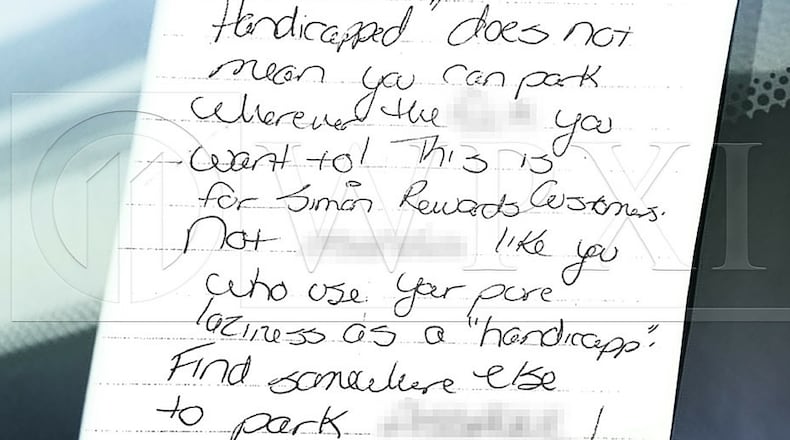 Handicapped" does not
mean you can park
wherever the you
want to! This is
for Simon Rewards Customers.
Not like you
who use your pure
laziness as a "handicapp".
Find somewhere else
to park !
WPXI